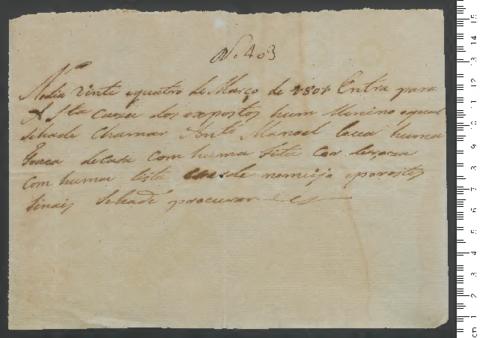 N. 403
No dia vinte e quatro de Março de 1801 Entra para
A Sta caza dos expostos hum Menino o qual
Sehade Chamar Anto Manoel Leva huma
touca de Casa com huma fita Cor de roza
com huma
Sinais Sehade procurar